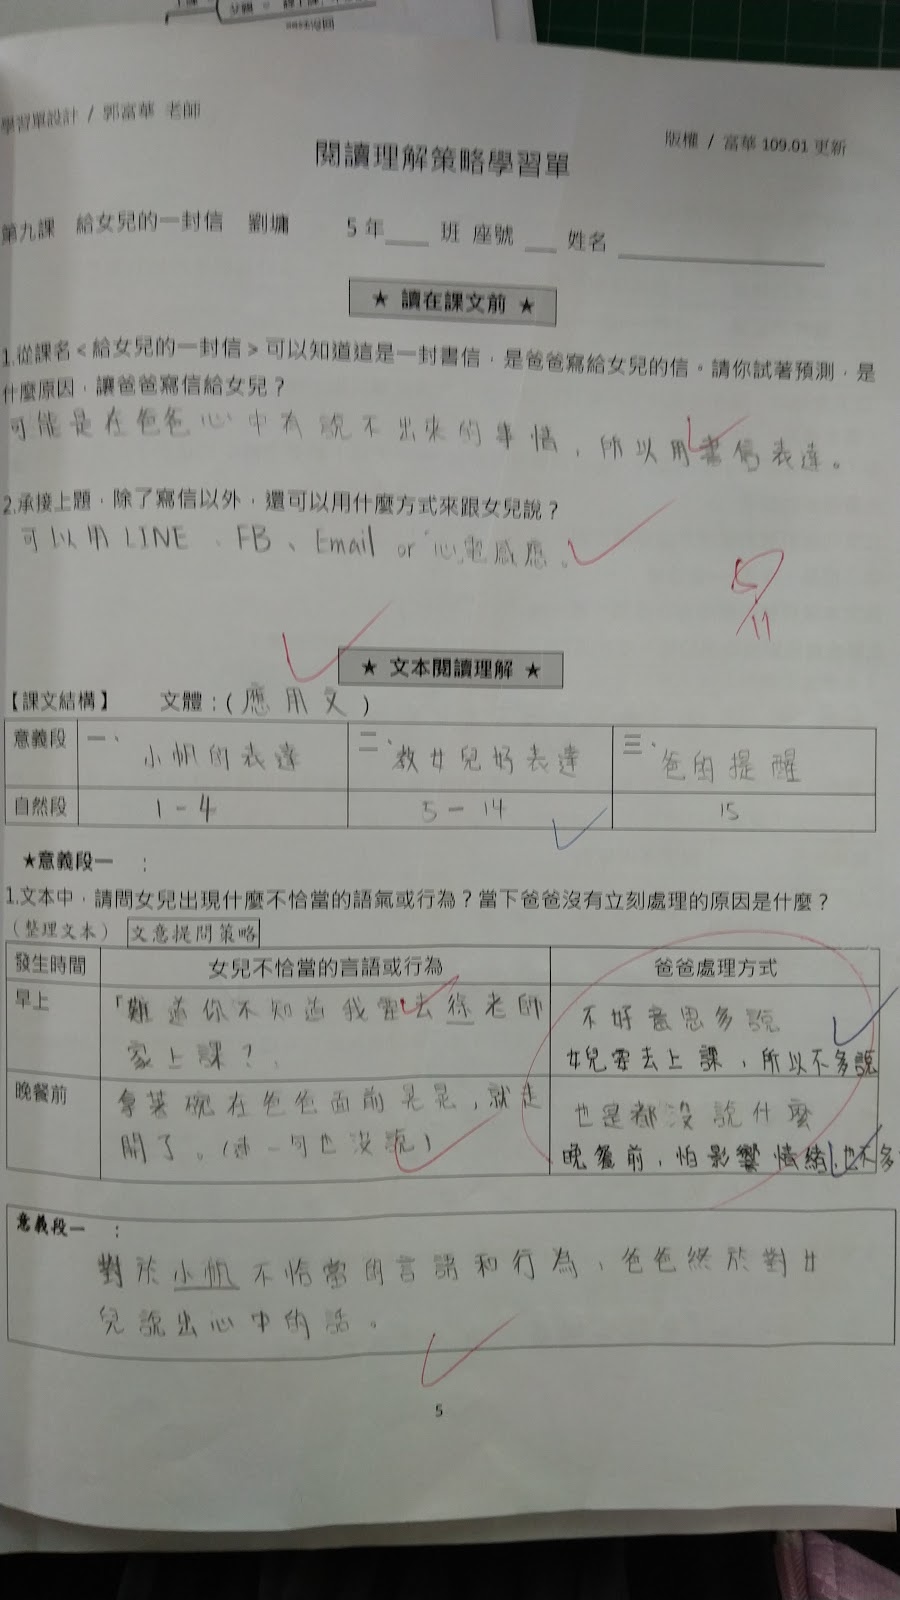 學習單設計 / 郭富華 老師
版權 / 富華 109.01 更新
閱讀理解策略學習單
第九課 給女兒的一封信 劉墉 5年____ 班 座號 ___ 姓名 ____________
★ 讀在課文前 ★
1.從課名<給女兒的一封信>可以知道這是一封書信，是爸爸寫給女兒的信。請你試著預測，是
什麼原因，讓爸爸寫信給女兒？
可能是在爸爸心中有說不出來的事情，所以用書信表達。
2.承接上題，除了寫信以外，還可以用什麼方式來跟女兒說？
可以用LINE、FB、Email or 心電感應。
5/11
★ 文本閱讀理解 ★
【課文結構】 文體：(應用文)
意義段 一、小帆的表達 二、教女兒好表達 三、爸的提醒
自然段 1-4 5-14 15
★意義段一 ：
1.文本中，請問女兒出現什麼不恰當的語氣或行為？當下爸爸沒有立刻處理的原因是什麼？
（整理文本） 文意提問策略
發生時間 女兒不恰當的言語或行為 爸爸處理方式
早上 「難道你不知道我要去徐老師 不好意思多說
家上課？」 女兒要去上課，所以不多說
晚餐前 拿著碗在爸爸面前晃晃，就走 也是都沒說什麼
開了。(連一句也沒說) 晚餐前，怕影響情緒，也不多
意義段一 ：
對於小帆不恰當的言語和行為，爸爸終於對女
兒說出心中的話。
5